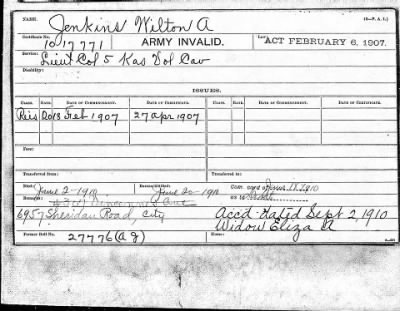 NAME. Jenkins Wilton A
Certificate No. 1017771 ARMY INVALID. ACT FEBRUARY 6, 1907.
Service: Lieut Col 5 Kas Vol Cav
Disability:
ISSUES.
CLASS. RATE. DATE OF COMMENCEMENT. DATE OF CERTIFICATE. CLASS. RATE. DATE OF COMMENCEMENT. DATE OF CERTIFICATE.
Reis 20 13 Feb 1907 27 apr 1907
Fees:
Transferred from: Transferred to:
Died: June 2-1910 June 20-1910 Card June 18, 1910
Remarks: Vincennes Ave
6957 Sheridan Road, City Acc'd dated Sept 2, 1910
Widow Eliza A
Former Roll No. 27776 (A g) Home: